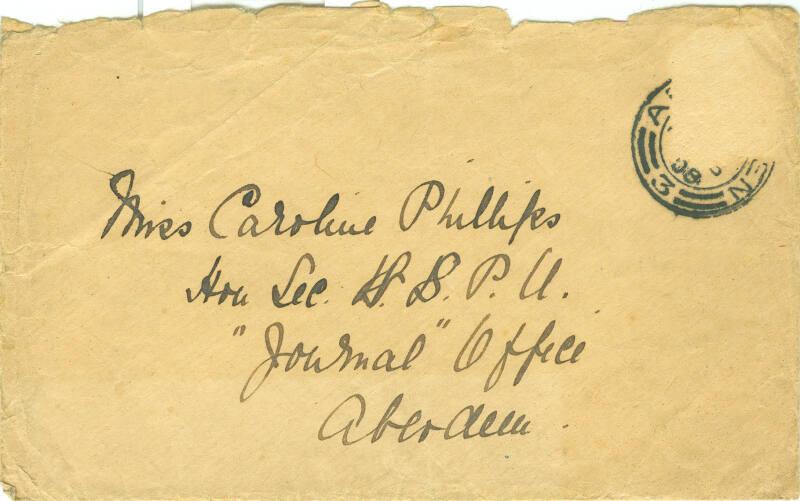 Miss Caroline Phillips
Hon Sec. W. S. P. U.
"Journal" Office
Aberdeen.
A
08
3 N